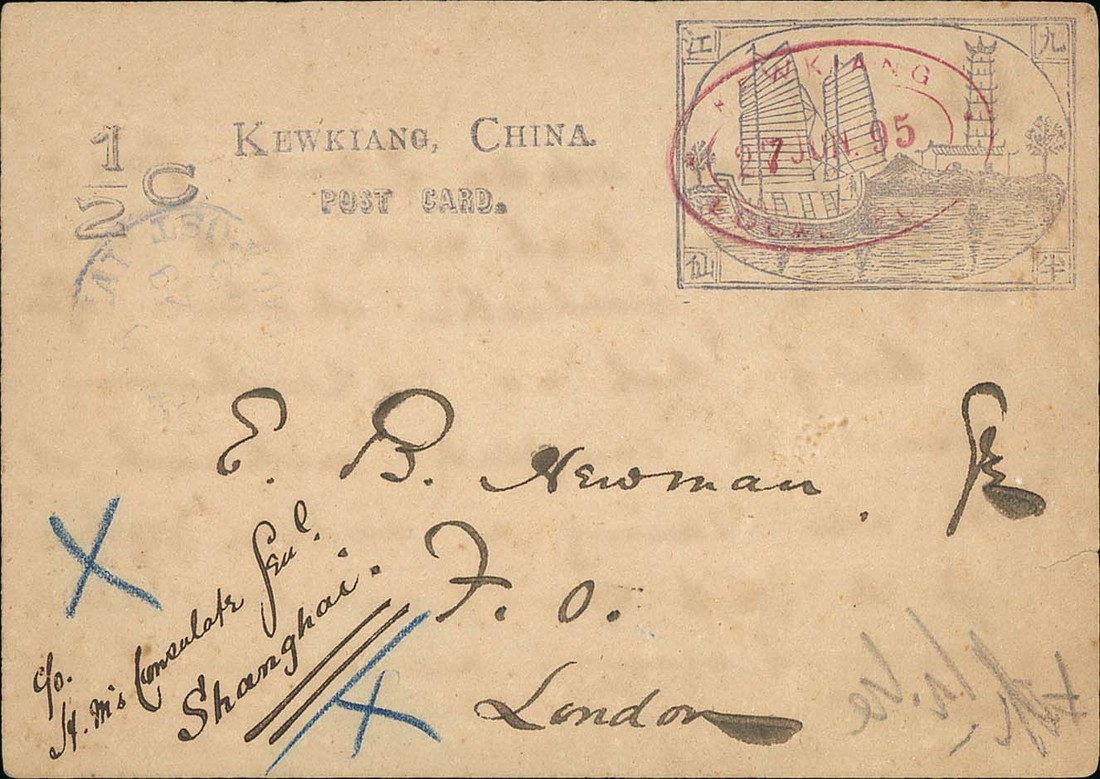 江 九
KEWKIANG
27 JUN. 95
LOCAL
仙 半
1/2 C
KEWKIANG, CHINA.
POST CARD.
E. B. Newman, Esq
F. O.
London
c/o.
H. M's Consulate Genl.
Shanghai.